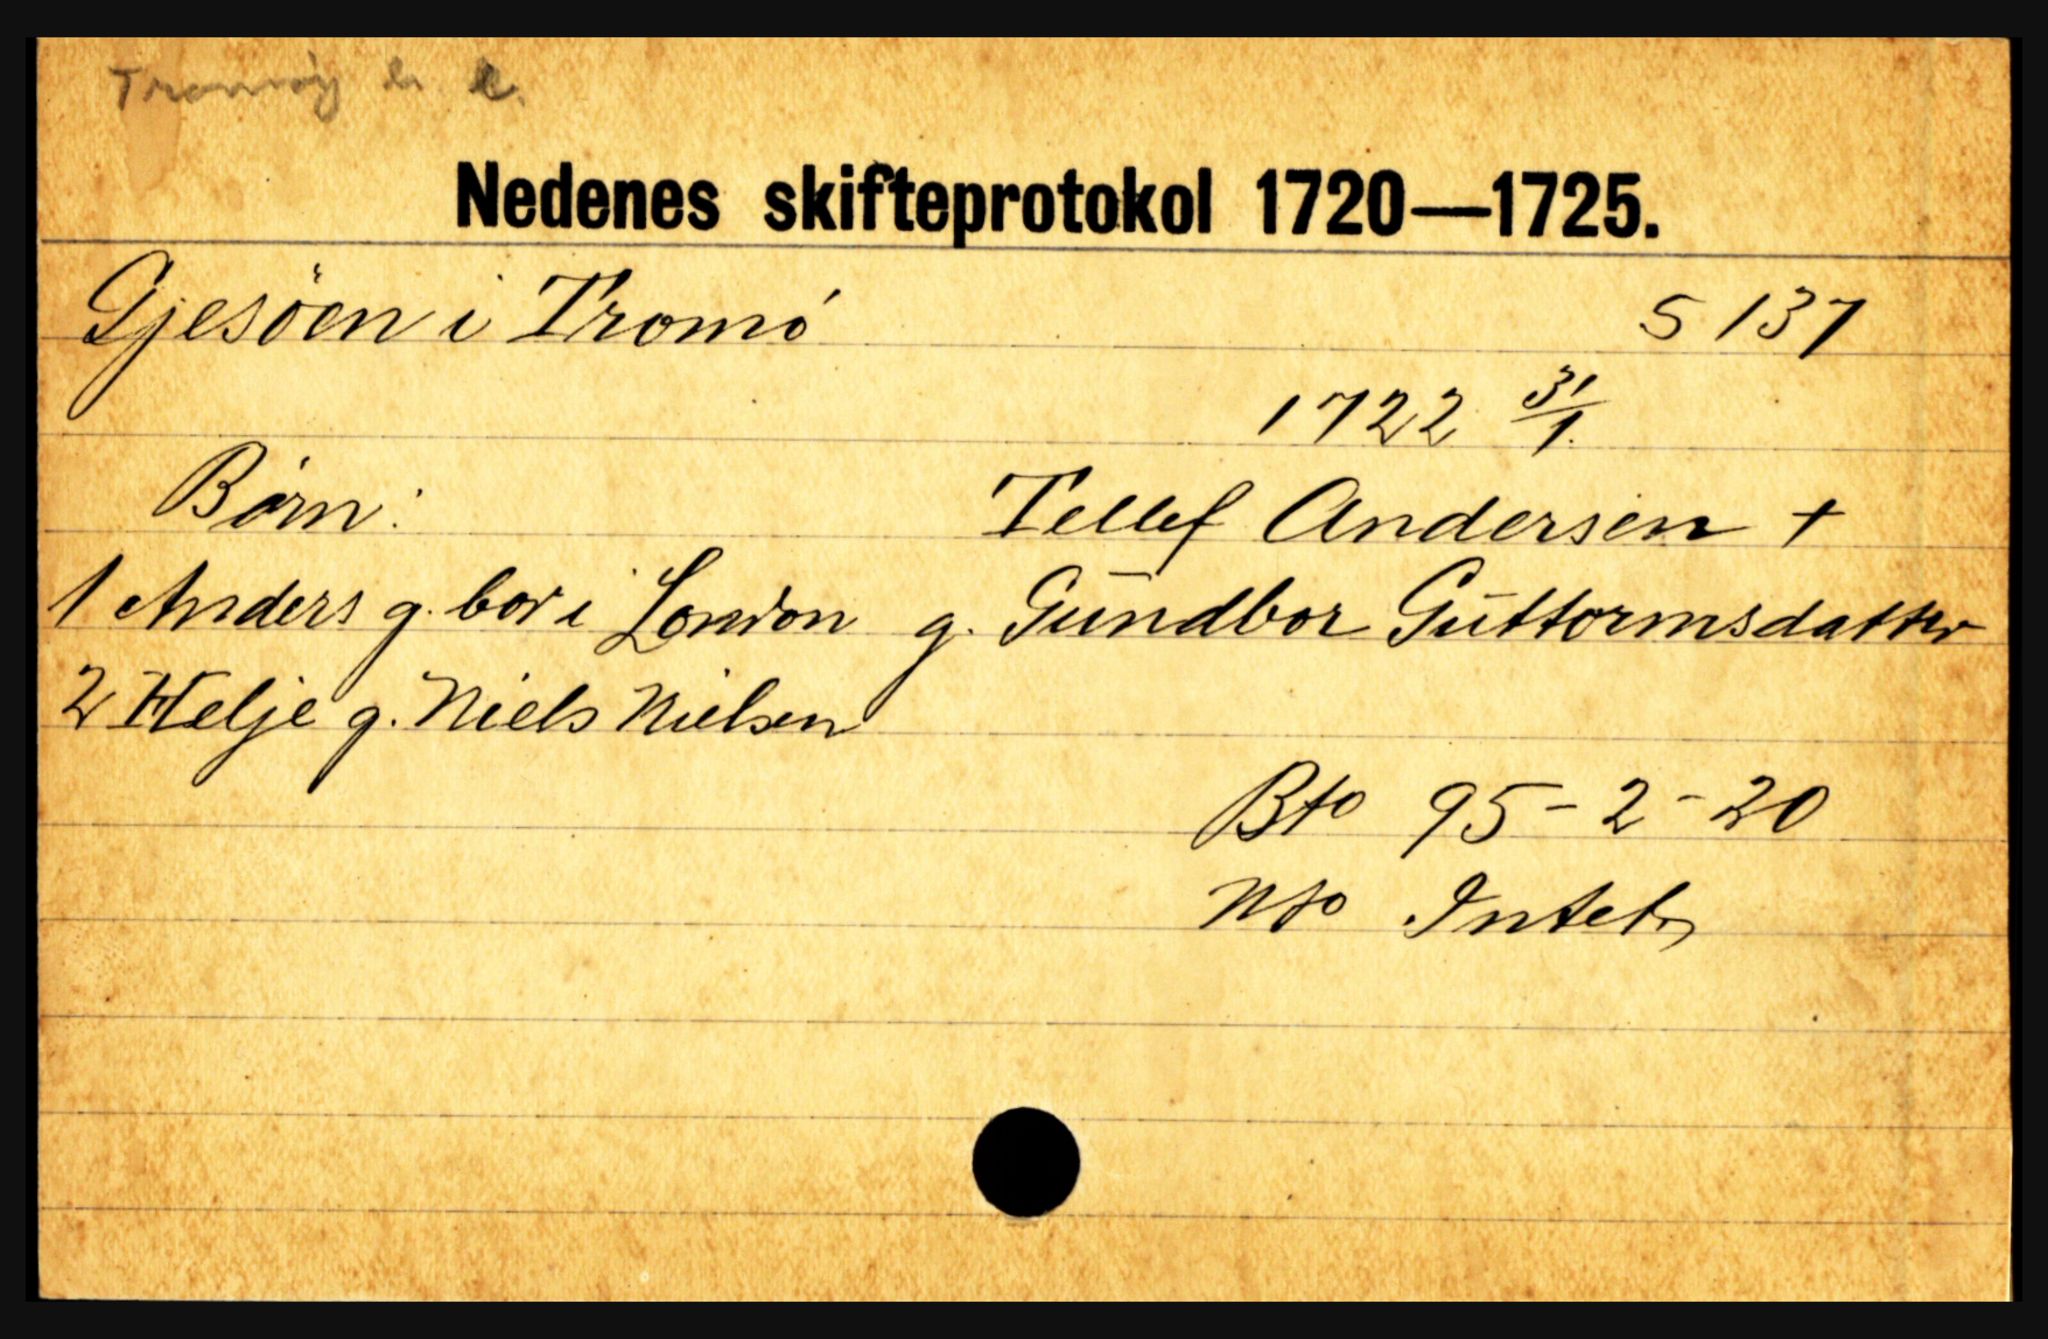 Tromøy
Nedenes skifteprotokol 1720—1725.
Gjesöen i Tromö S 137
1722 31/1.
Børn: Tellef Andersen +
1 Anders g. bor i London g. Gundbor Guttormsdatter
2 Helje g. Niels Nielsen
Bto 95-2-20
Nto Intet